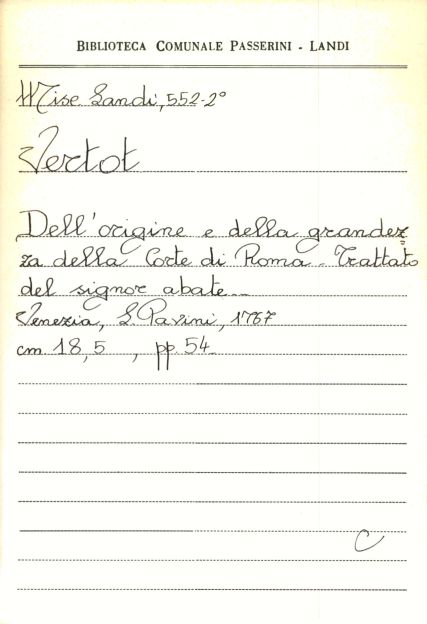 BIBLIOTECA COMUNALE PASSERINI - LANDI
Misc Landi, 552-2°
Vertot
Dell'origine e della grandez
za della Corte di Roma - Trattato
del signor abate...
Venezia, L. Pavini, 1767
cm 18,5 , pp. 54
C